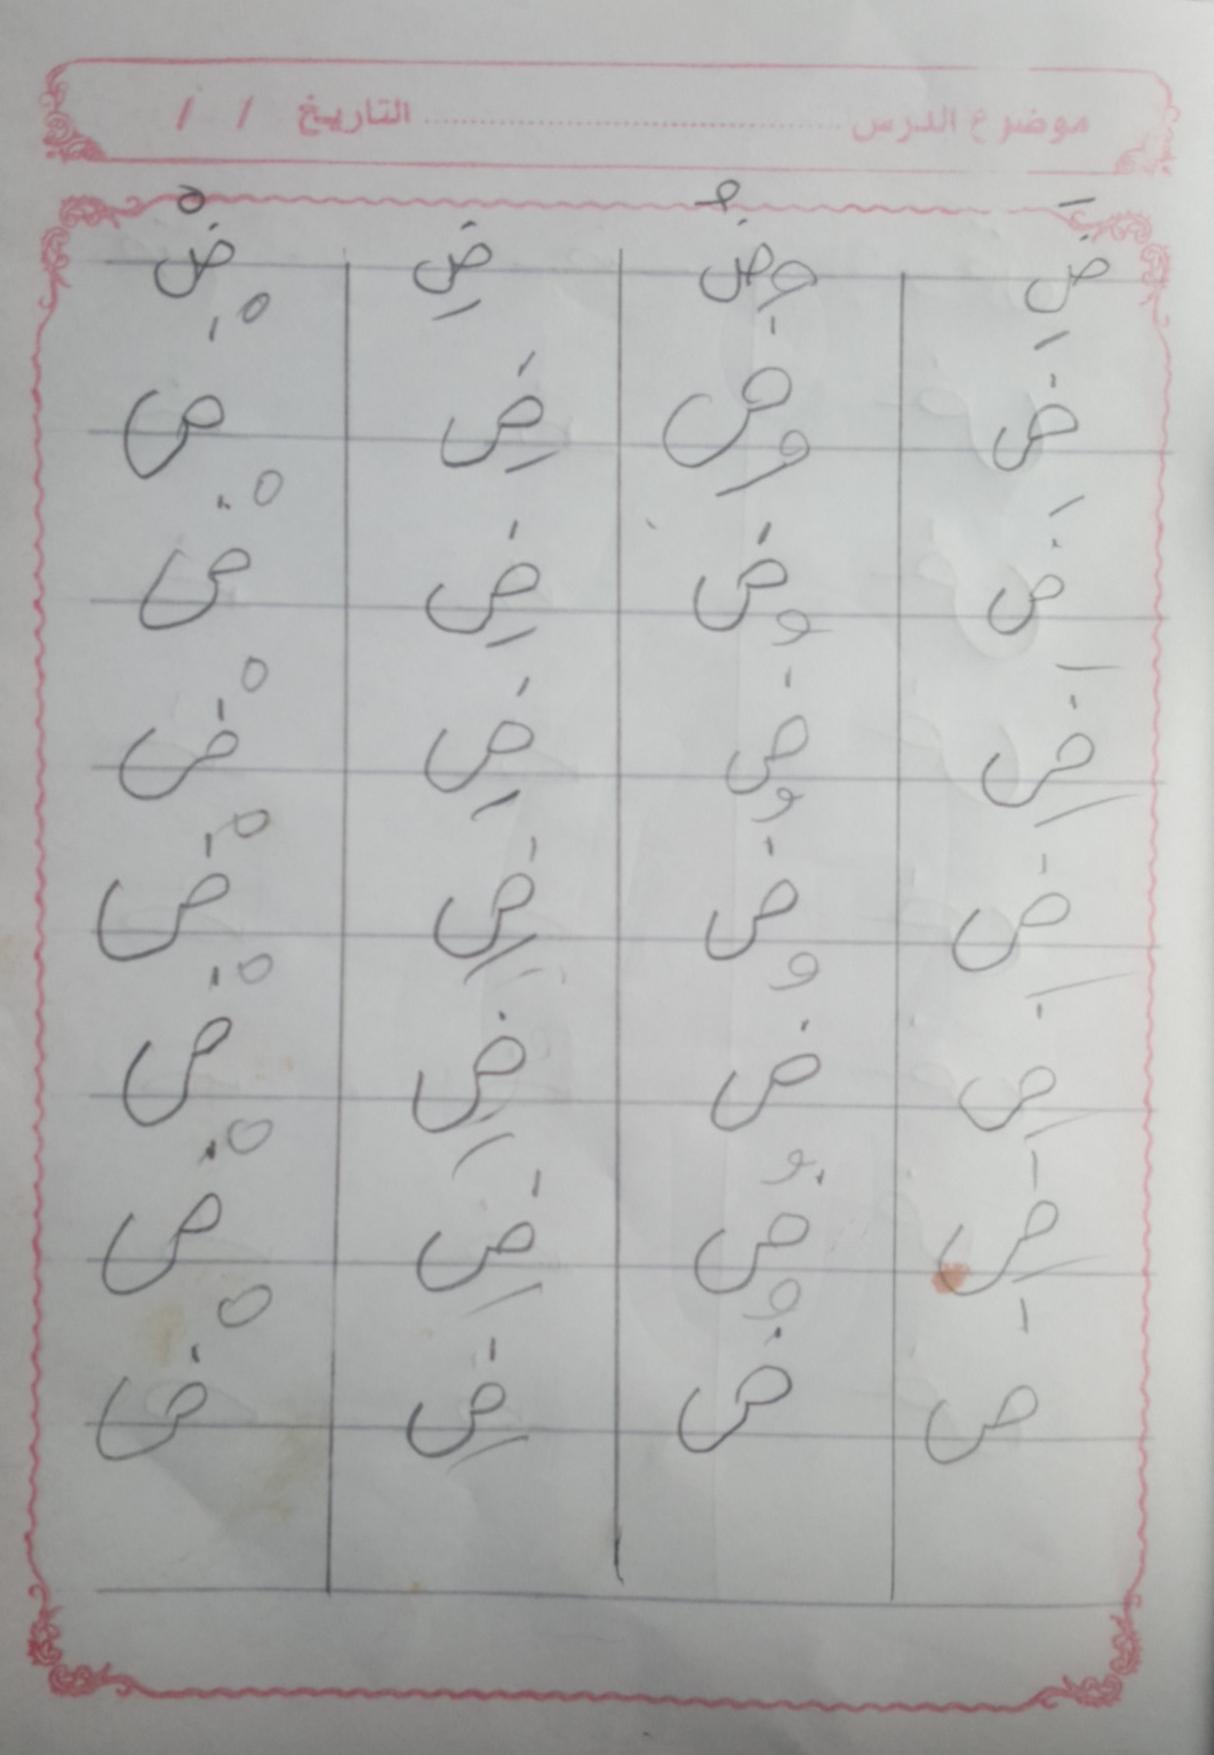 موضوع الدرس ........................ التاريخ / /
ضَ ضُ ضِ ضْ
ضَ ضُ ضِ ضْ
ضَ ضُ ضِ ضْ
ضَ ضُ ضِ ضْ
ضَ ضُ ضِ ضْ
ضَ ضُ ضِ ضْ
ضَ ضُ ضِ ضْ
ضَ ضُ ضِ ضْ